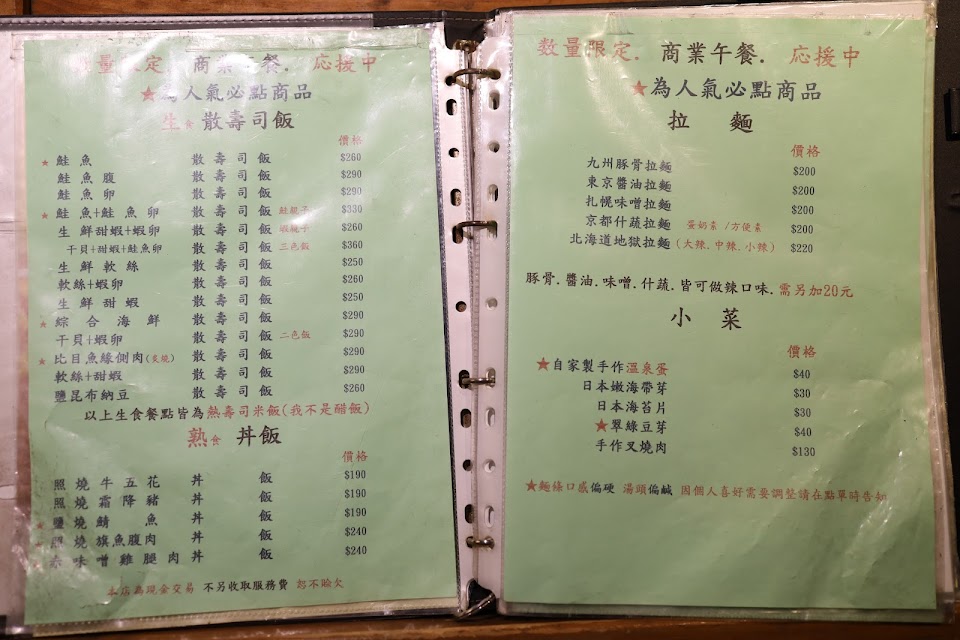 數量限定. 商業午餐. 応援中
★為人氣必點商品
生食 散壽司飯
價格
★ 鮭魚 散壽司飯 $260
鮭魚腹 散壽司飯 $290
鮭魚卵 散壽司飯 $290
★ 鮭魚+鮭魚卵 散壽司飯 鮭親子 $330
生鮮甜蝦+蝦卵 散壽司飯 蝦親子 $260
干貝+甜蝦+鮭魚卵 散壽司飯 三色飯 $360
生鮮軟絲 散壽司飯 $250
軟絲+蝦卵 散壽司飯 $260
生鮮甜蝦 散壽司飯 $250
★ 綜合海鮮 散壽司飯 $290
干貝+蝦卵 散壽司飯 二色飯 $290
★ 比目魚緣側肉(炙燒) 散壽司飯 $290
軟絲+甜蝦 散壽司飯 $290
鹽昆布納豆 散壽司飯 $260
以上生食餐點皆為熱壽司米飯(我不是醋飯)
熟食 丼飯
價格
照燒牛五花 丼飯 $190
照燒霜降豬 丼飯 $190
★ 鹽燒鯖魚 丼飯 $190
★ 照燒旗魚腹肉 丼飯 $240
赤味噌雞腿肉 丼飯 $240
本店為現金交易 不另收取服務費 恕不賒欠
數量限定. 商業午餐. 応援中
★為人氣必點商品
拉麵
價格
九州豚骨拉麵 $200
東京醬油拉麵 $200
札幌味噌拉麵 $200
京都什蔬拉麵 蛋奶素/方便素 $200
北海道地獄拉麵(大辣.中辣.小辣) $220
豚骨.醬油.味噌.什蔬.皆可做辣口味.需另加20元
小菜
價格
★自家製手作溫泉蛋 $40
日本嫩海帶芽 $30
日本海苔片 $30
★翠綠豆芽 $40
手作叉燒肉 $130
★麵條口感偏硬 湯頭偏鹹 因個人喜好需要調整請在點單時告知